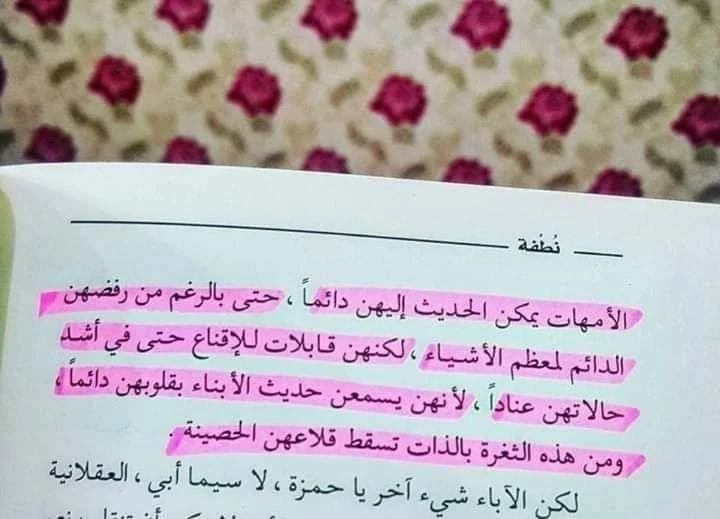 نُطْفة
الأمهات يمكن الحديث إليهن دائماً ، حتى بالرغم من رفضهن
الدائم لمعظم الأشياء ، لكنهن قابلات للإقناع حتى في أشد
حالاتهن عناداً ، لأنهن يسمعن حديث الأبناء بقلوبهن دائماً ،
ومن هذه الثغرة بالذات تسقط قلاعهن الحصينة .
لكن الآباء شيء آخر يا حمزة ، لا سيما أبي ، العقلانية